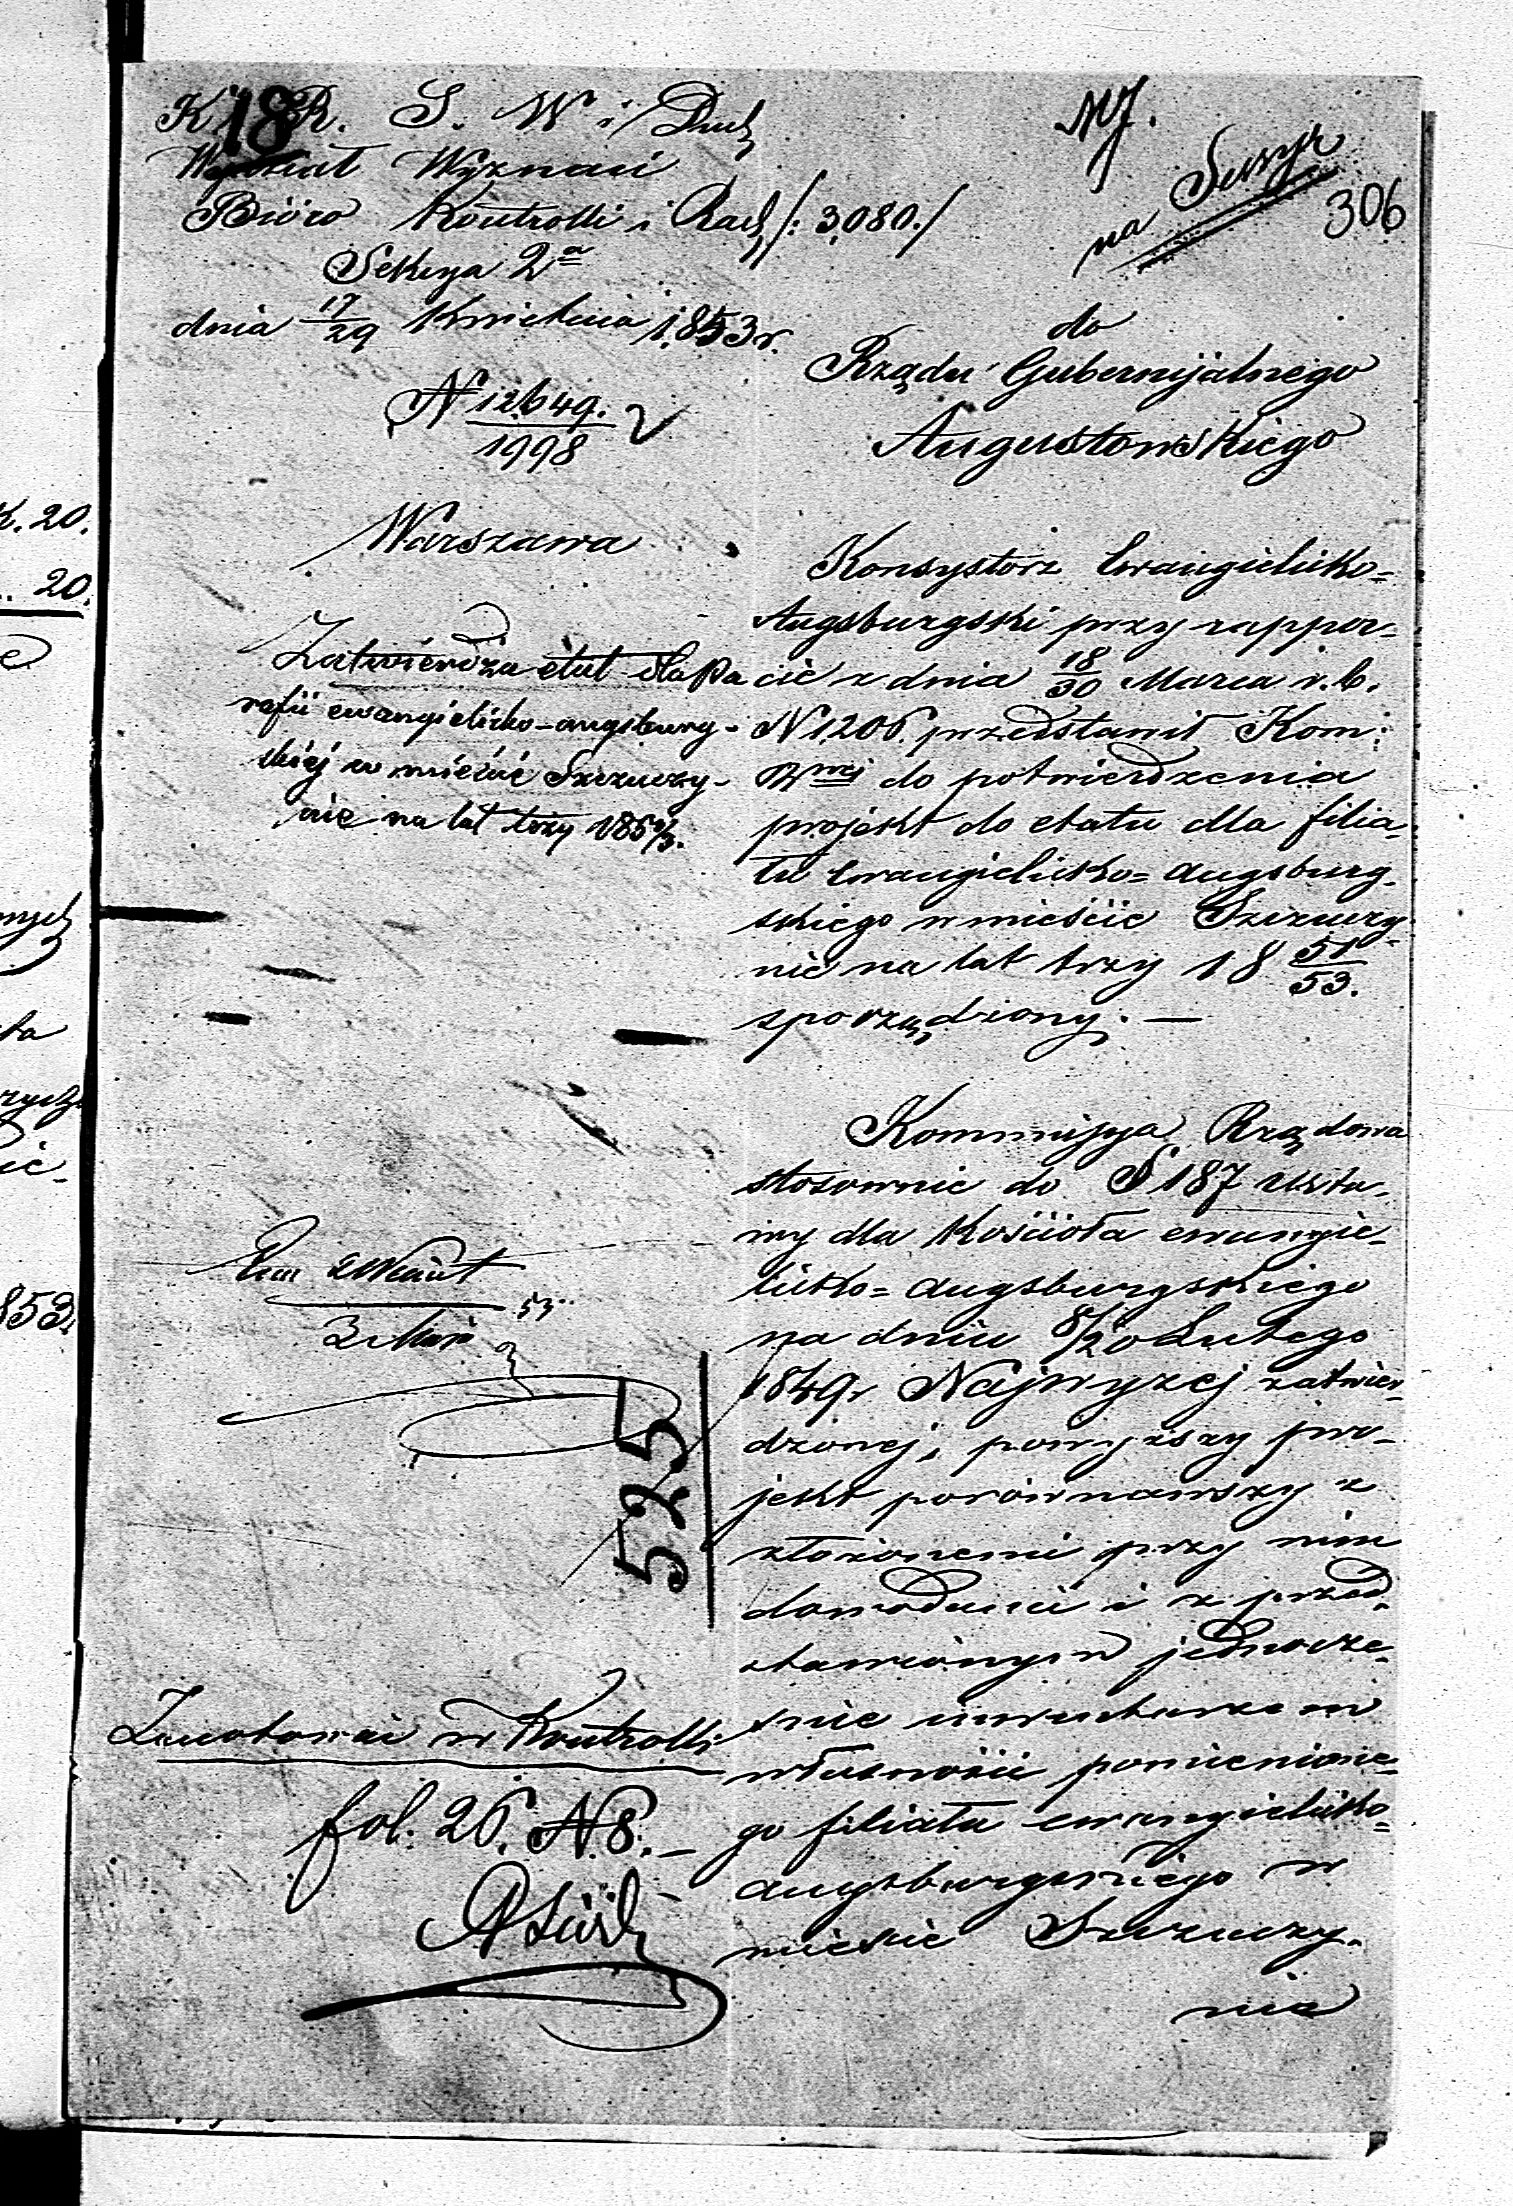 K. 18 R. S. W. i Duch
Wydział Wyznań
Biuro Kontrolli i Rach /: 3,080./
Sekcya 2a
dnia 17/29 Kwietnia 1853 r.
N 12649.
1998
Warszawa
na Sessyę
306
do
Rządu Gubernijalnego
Augustowskiego
Zatwierdza etat dla Pa
rafii ewangielicko-augsburg-
skiéj w mieście Szczuczy-
nie na lat trzy 1851/3.
Konsystorz Ewangielicko=
Augsburgski przy rappor-
cie z dnia 18/30 Marca r. b.
N 1206. przedstawił Kom:
Rwej do potwierdzenia
projekt do etatu dla filia-
łu Ewangielicko= Augsburg-
skiego w mieście Szczuczy-
nie na lat trzy 18 51/53.
sporządzony. —
Kommissya Rządowa
stosownie do § 187 Usta-
wy dla Kościoła ewangie-
licko= Augsburgskiego
na dniu 8/20 Lutego
1849 r Najwyżej zatwier-
dzonej, powyższy pro-
jekt porównawszy z
złożonemi przy nim
dowodami i z przed-
stawionym jednocze-
śnie inwentarzem
własności pomienione-
go filiału ewangielicko=
augsburgskiego w
mieście Szczuczy-
nie
53
525
Zanotować w Kontrolli
fol. 26. N 8. —
K. 20.
20.
853.